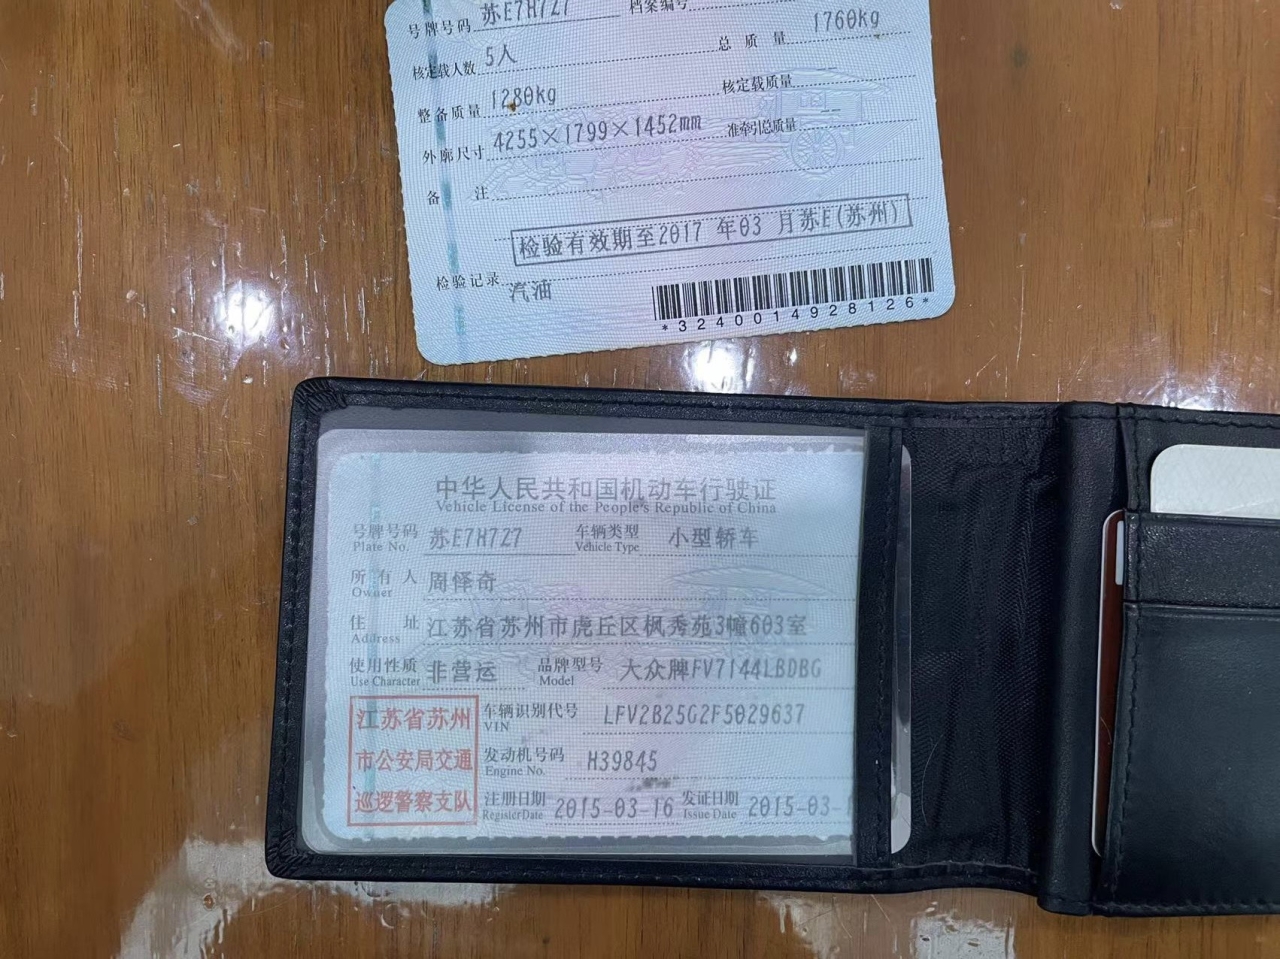 号牌号码 苏E7H727 档案编号
核定载人数 5人 总质量 1760kg
整备质量 1280kg 核定载质量
外廓尺寸 4255×1799×1452mm 准牵引总质量 --
备注
检验有效期至2017 年03 月苏E(苏州)
检验记录
汽油
*3240014928126*
中华人民共和国机动车行驶证
Vehicle License of the People's Republic of China
号牌号码 苏E7H727 车辆类型 小型轿车
Plate No. Vehicle Type
所有人 周怿奇
Owner
住址 江苏省苏州市虎丘区枫秀苑3幢603室
Address
使用性质 非营运 品牌型号 大众牌FV7144LBDBG
Use Character Model
江苏省苏州
市公安局交通
巡逻警察支队
车辆识别代号 LFV2B25G2F5029637
VIN
发动机号码 H39845
Engine No.
注册日期 2015-03-16 发证日期 2015-03-
Register Date Issue Date